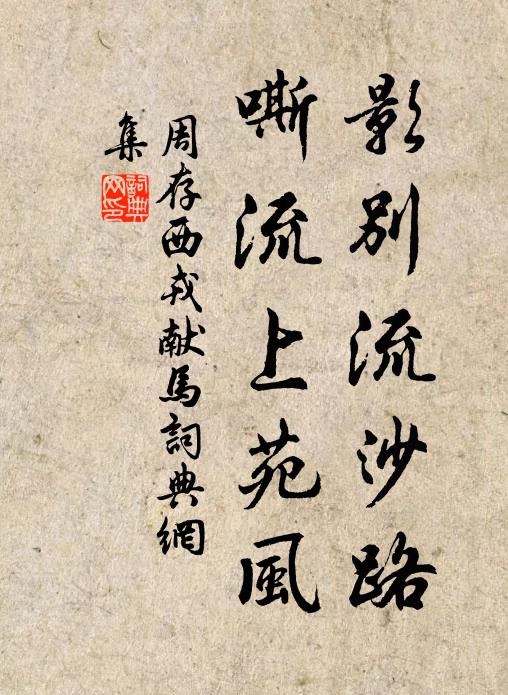 影别流沙路
嘶流上苑風
周存西戎献馬詞典網
集
詞典
网印